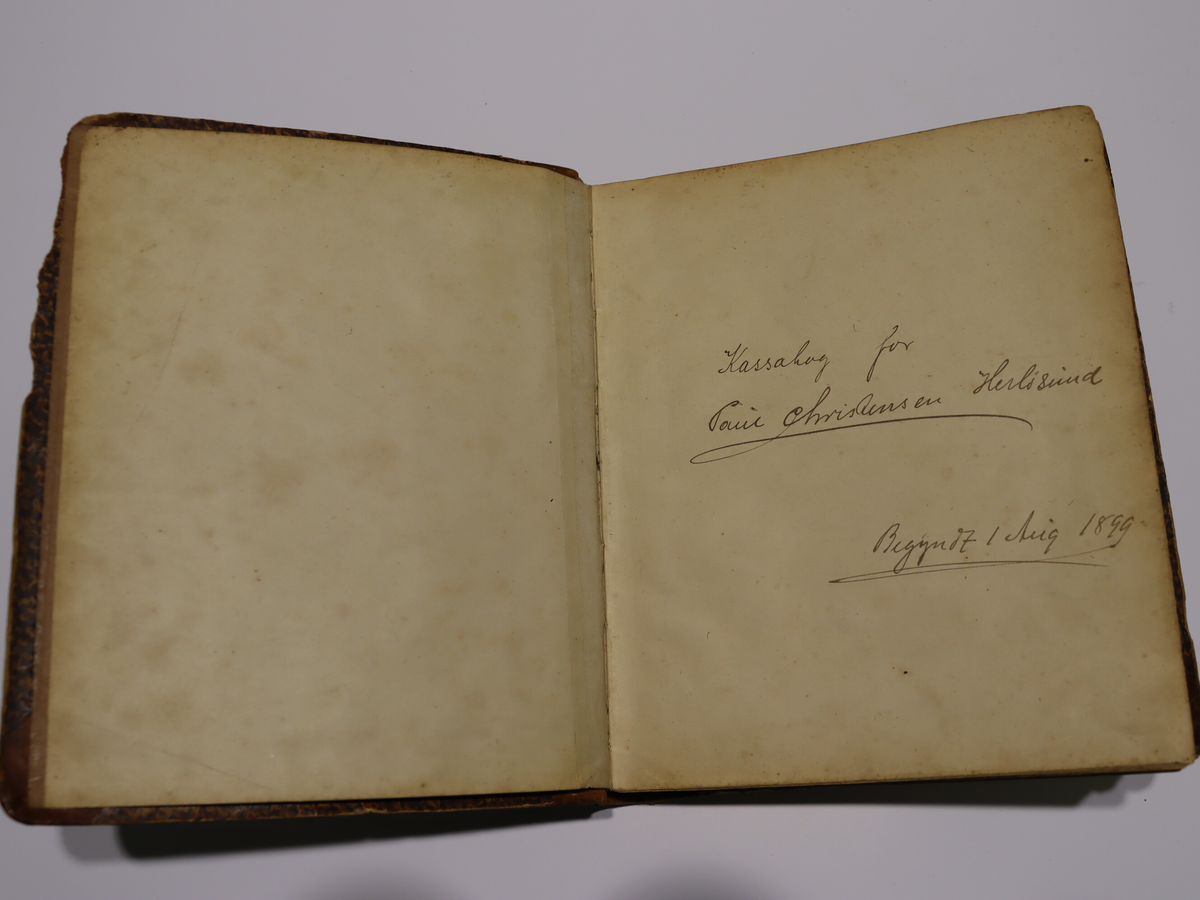 Kassabog for
Paul Christensen Herløsund
Begyndt 1 Aug 1899